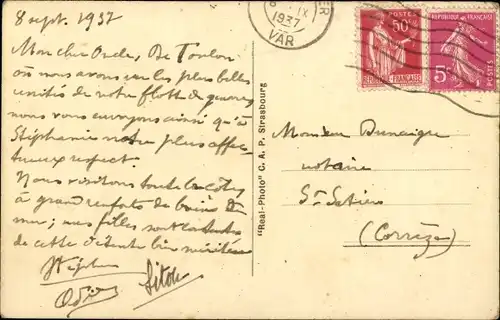 8 sept. 1937
Mon cher Oncle, De Toulon
où nous avons vu les plus belles
unités de notre flotte de guerre,
nous vous envoyons ainsi qu'à
Stéphanie notre plus affec-
tueux respect.
Nous visitons toute la côte,
à grand renforts de bains de
mer; mes filles sont contentes
de cette détente bien méritée
Odi
"Real-Photo" C. A. P. Strasbourg
IX
1937
VAR
POSTES
50c
RÉPUBLIQUE FRANÇAISE
REPUBLIQUE FRANÇAISE
5c
Monsieur
notaire
(Corrèze)